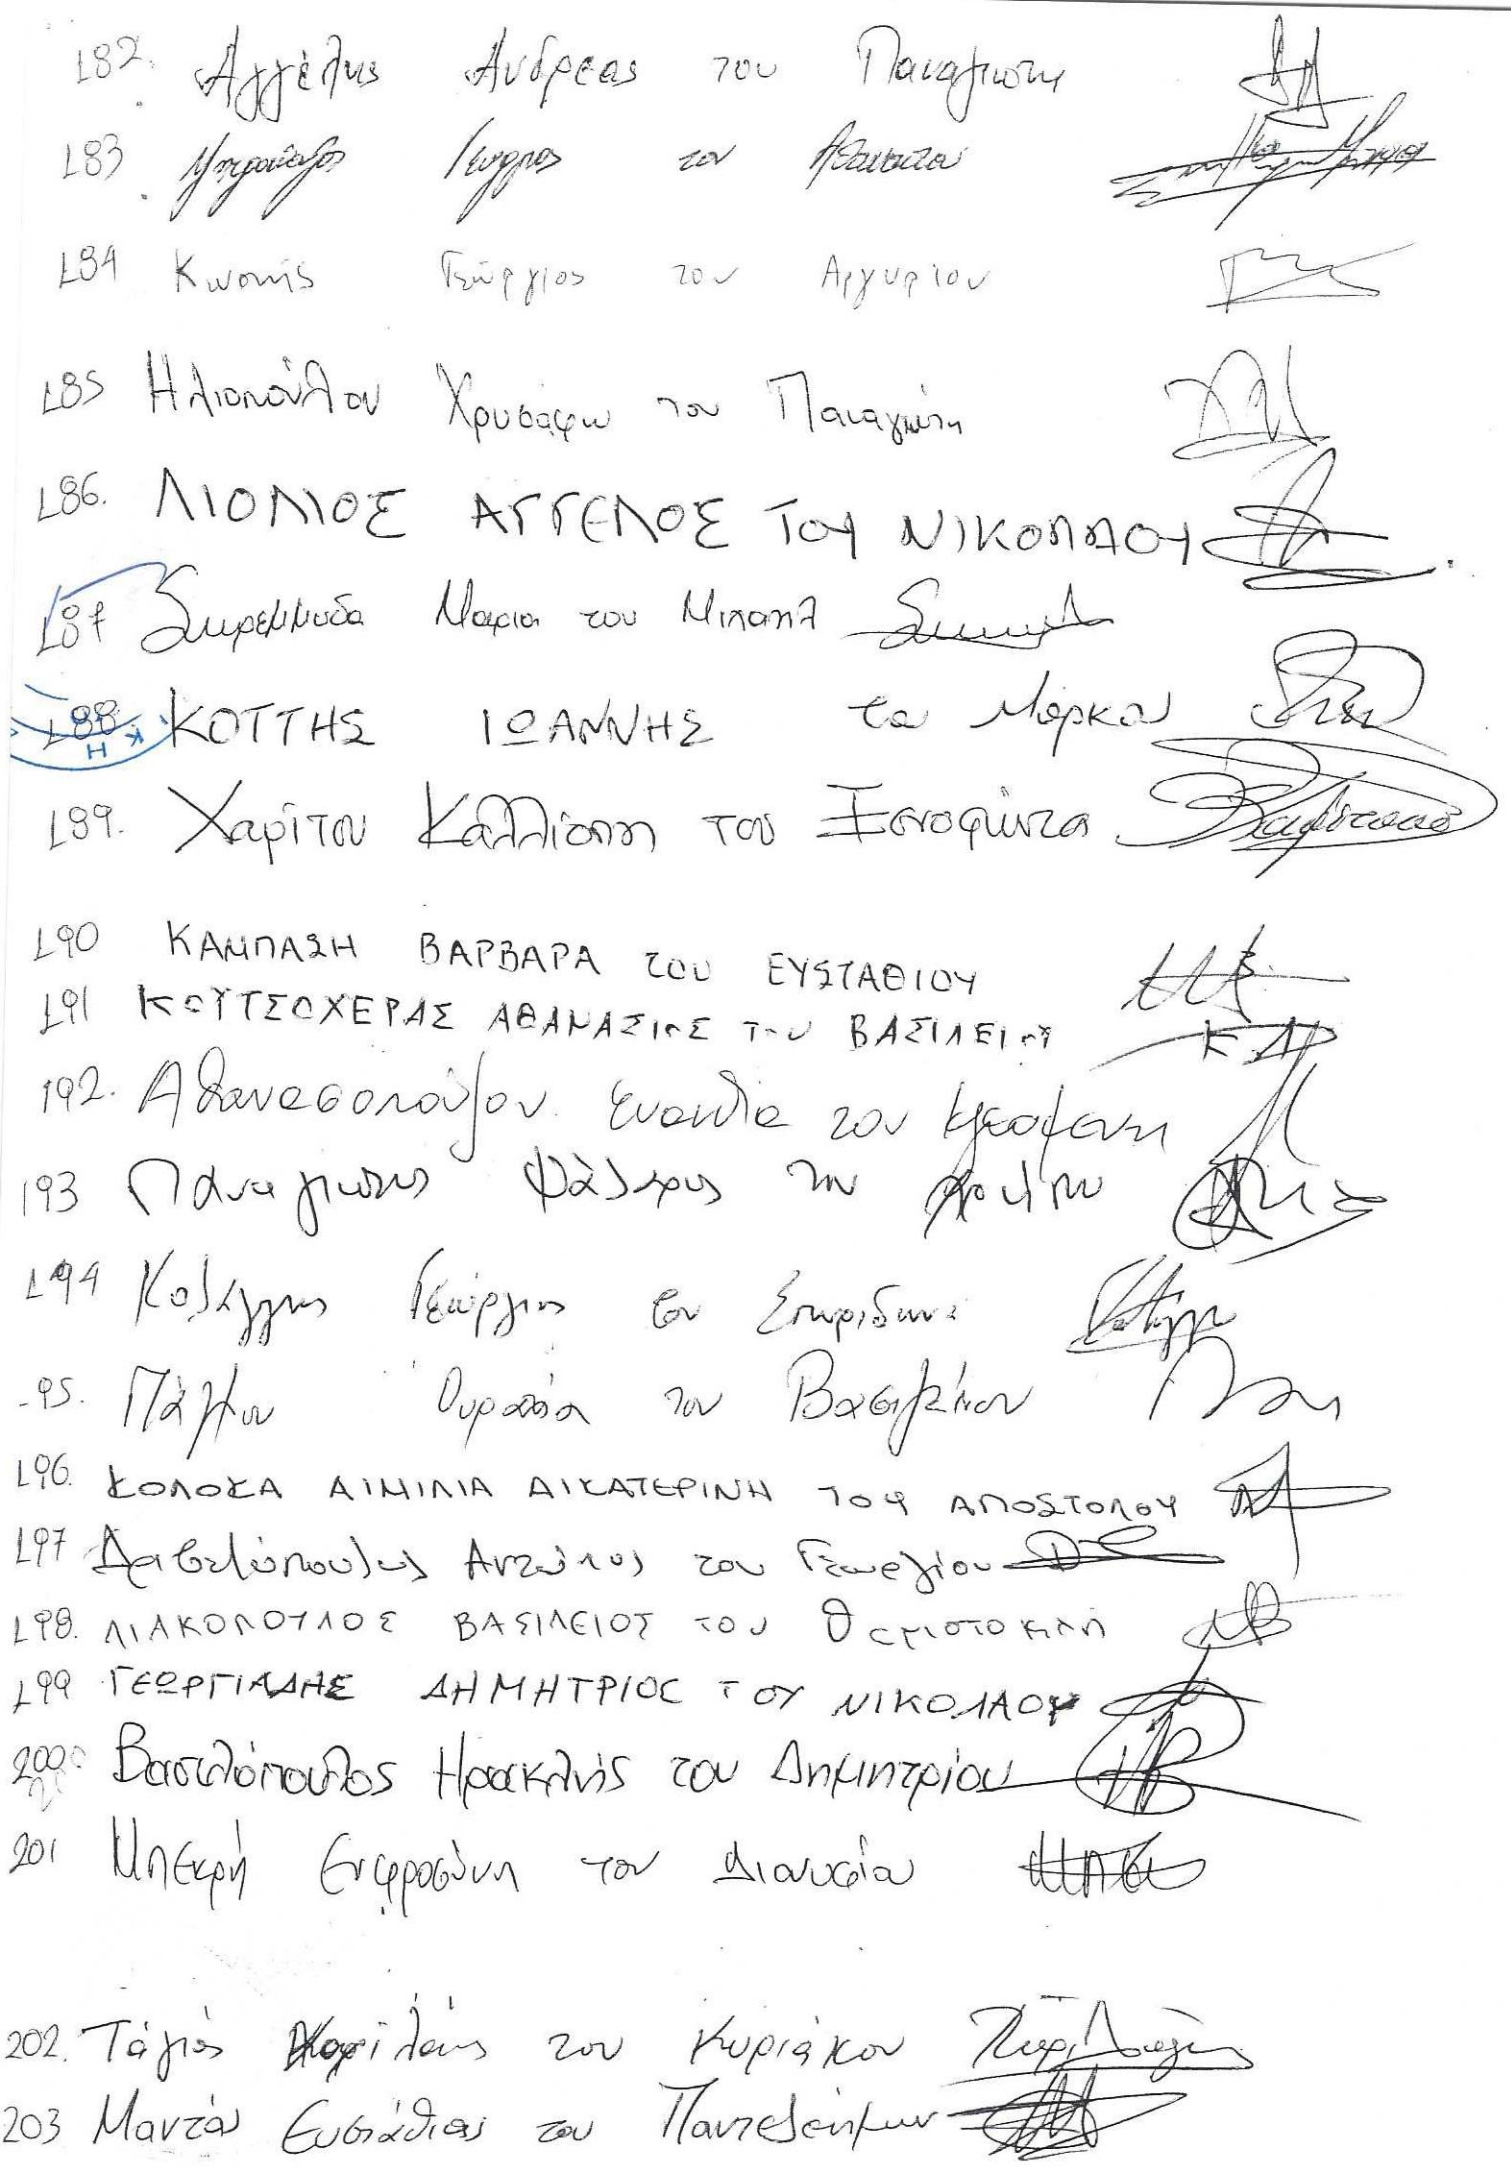 182. Αγγέλης Ανδρεας του Παναγιωτη
183 Γεωργιος του Αθανασιου
184 Κωστής Γεώργιος του Αργυρίου
185 Ηλιοπούλου Χρυσάφω του Παναγιώτη
186. ΛΙΟΛΙΟΣ ΑΓΓΕΛΟΣ ΤΟΥ ΝΙΚΟΛΑΟΥ
187 Μαρια του Μιχαηλ
188 ΚΟΤΤΗΣ ΙΩΑΝΝΗΣ του Μάρκου
189. Χαρίτου Καλλιόπη του Ξενοφώντα
190 ΚΑΜΠΑΣΗ ΒΑΡΒΑΡΑ του ΕΥΣΤΑΘΙΟΥ
191 ΚΟΥΤΣΟΧΕΡΑΣ ΑΘΑΝΑΣΙΟΣ του ΒΑΣΙΛΕΙΟΥ
192. Αθανασοπούλου Ευανθία του
193 Παναγιωτης Φάληρος του
194 Γεώργιος του Σπυρίδωνα
95. Πάλλου Ουρανία του Βασιλείου
196. ΚΟΛΟΚΑ ΑΙΜΙΛΙΑ ΑΙΚΑΤΕΡΙΝΗ ΤΟΥ ΑΠΟΣΤΟΛΟΥ
197 Αντώνιος του Γεωργίου
198. ΛΙΑΚΟΠΟΥΛΟΣ ΒΑΣΙΛΕΙΟΣ ΤΟΥ Θεμιστοκλή
199 ΓΕΩΡΓΙΑΔΗΣ ΔΗΜΗΤΡΙΟΣ ΤΟΥ ΝΙΚΟΛΑΟΥ
200 Βασιλόπουλος Ηρακλής του Δημητρίου
201 Μπεκρή Ευφροσύνη του Διονυσίου
202. Τάγιος του Κυριάκου
203 Μαντάς Ευστάθιος του Παντελεήμων